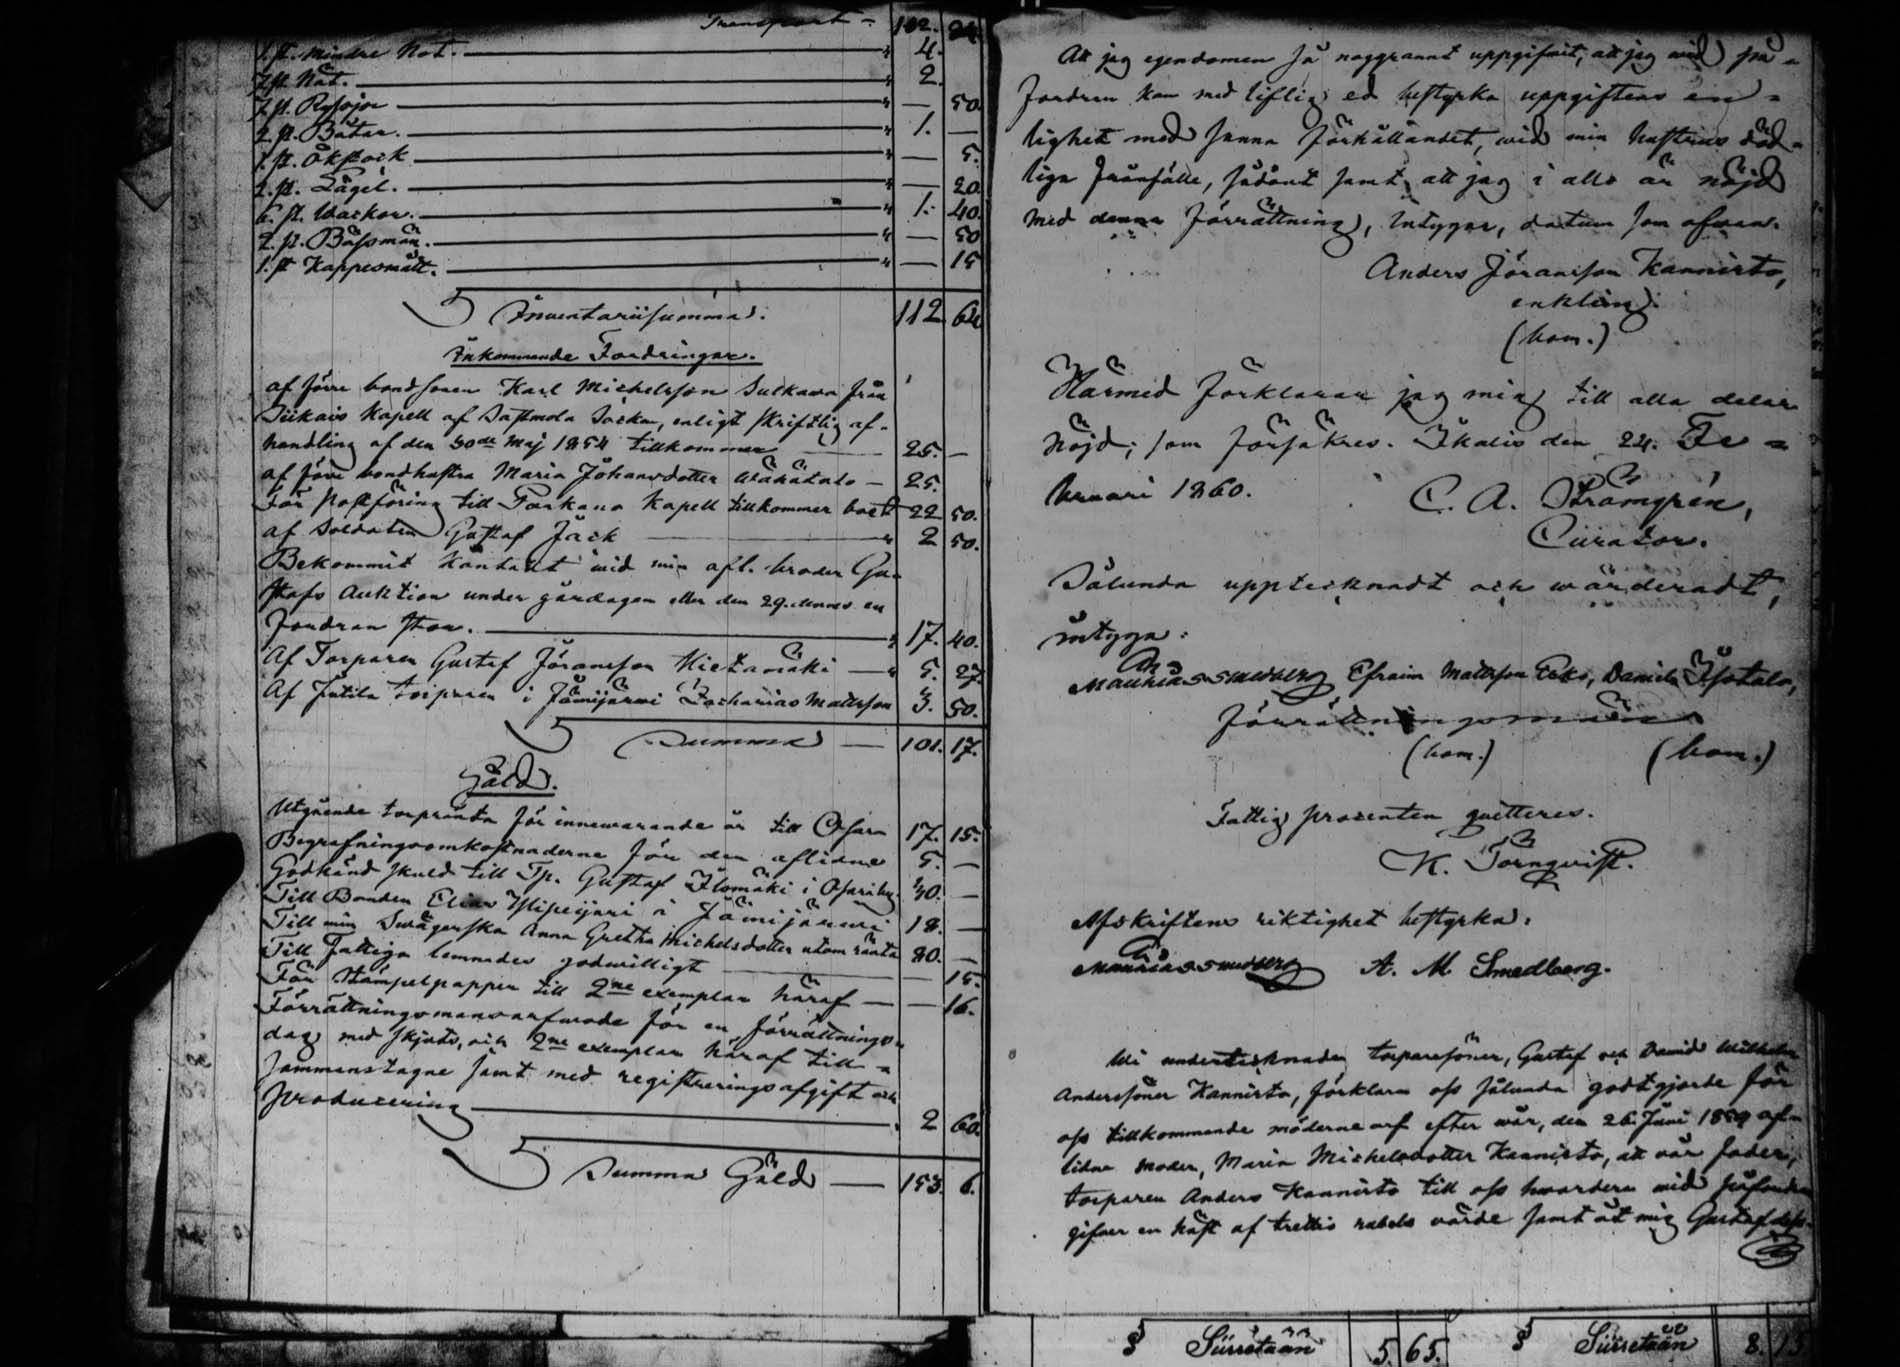 Transport - 102. 24
1. st. mindre Not. " 4.
7 st. Nät. " 2.
7. st. Rysjor " — 50
2. st. Båtar. " 1. —
1. st. Ökstock " — 5.
2. st. Lägel. " — 20.
6. st. Wackor. " 1. 40.
2. st. Båssmån. " — 50
1. st Kappesmått. " — 15
Inventarii summa. 112. 64
Inkommande Fordringar.
af förre bondsonen Karl Michelsson Sulkava från
Siikais Kapell af Sastmola Socken, enligt skriftlig af-
handling af den 30de Maj 1854 tillkommer 25. —
af förre bondhustru Maria Johansdotter — 25.
För Postföring till Parkano Kapell tillkommer boet 22 50.
af Soldaten Gustaf Jäck " 2 50.
Bekommit kontant wid min afl. broder Gu-
stafs Auktion under gårdagen eller den 29. dennes en
fordran stor. " 17. 40.
Af Torparen Gustaf Jöransson Kietamäki — " 5. 27.
Af torparen i Jämijärwi Zacharias Mattsson 3. 50.
Summa — 101. 17.
Gäld.
Utgående torpränta för innewarande år till Osara 17. 15.
Begrafningsomkostnaderne för den aflidne 5. —
Godkänd skuld till Tp. Gustaf Ilomäki i Osaraby. 30. —
Till Bonden Elias i Jämijärwi 18. —
Till min Swägerska Anna Gretha Michelsdotter utom ränta 80. —
Till Fattiga lemnades godwilligt 15.
För Stämpelpapper till 2ne exemplar häraf — — 16.
Förrättningsmansarfwode för en förrättnings-
dag med skjuts, och 2ne exemplar häraf till-
sammanstagne samt med registreringsafgift och
producering 2 60.
Summa Gäld — 153. 6.
Att jag egendomen så noggrannt uppgifwit, att jag wid på-
fordran kan med liflig ed bestyrka uppgiftens en-
lighet med sanna förhållandet, wid min hustrus död-
liga frånfälle, sådant samt att jag i allo är nöjd
med denna förrättning, intygar, datum som ofwan.
Anders Jöransson Kannisto,
enkling.
(bom.)
Härmed förklarar jag mig till alla delar
nöjd; som försäkres. Ikalis den 24. Fe-
bruari 1860. C. A. Strömgrén,
Curator.
Sålunda upptecknadt och wärderadt,
intyga:
Matthias Smedberg Efraim Mattsson Esko, Daniel Isotalo,
Förrättningsmän
(bom.) (bom.)
Fattig procenten qvitteres.
K. Törnqvist.
Afskriftens riktighet bestyrka:
Matthias Smedberg A. M. Smedberg.
Wi undertecknade torparesöner, Gustaf och David Wilhelm
Anderssöner Kannisto, förklara oss sålunda godtgjorde för
oss tillkommande möderne arf efter wår, den 26. Juni 1859 af-
lidne moder, Maria Michelsdotter Kannisto, att wår fader,
torparen Anders Kannisto till oss hwardera wid påfordran
gifwer en häst af trettio rubels wärde samt åt mig Gustaf dess-
§ Siirretään 5. 65. § Siirretään 8. 15